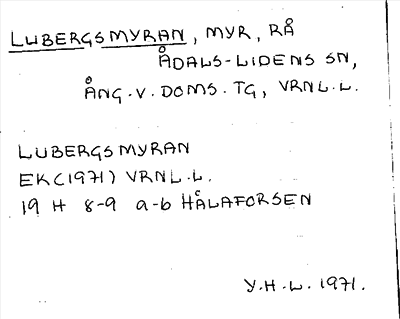 LUBERGSMYRAN, MYR, RÅ
ÅDALS-LIDENS SN,
ÅNG.V.DOMS.TG, VRNL.L.
LUBERGSMYRAN
EK(1971) VRNL.L.
19 H 8-9 a-b HÅLAFORSEN
Y.H.L. 1971.